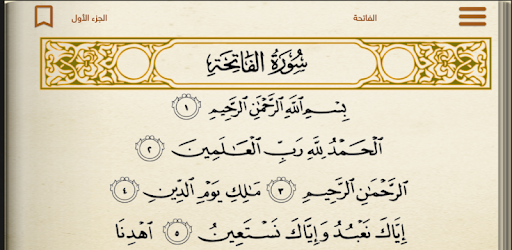 الفاتحة
الجزء الأول
سُورَةُ الفَاتِحَةِ
بِسْمِ ٱللَّهِ ٱلرَّحْمَٰنِ ٱلرَّحِيمِ ١
ٱلْحَمْدُ لِلَّهِ رَبِّ ٱلْعَٰلَمِينَ ٢
ٱلرَّحْمَٰنِ ٱلرَّحِيمِ ٣ مَٰلِكِ يَوْمِ ٱلدِّينِ ٤
إِيَّاكَ نَعْبُدُ وَإِيَّاكَ نَسْتَعِينُ ٥ ٱهْدِنَا